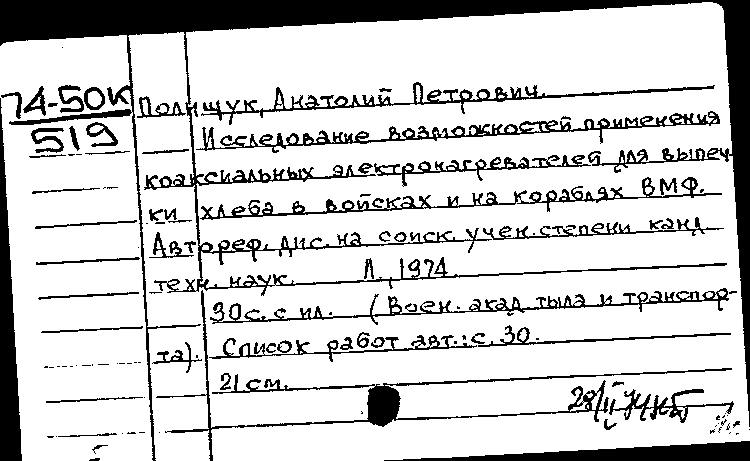 74-50К
519
Полищук, Анатолий Петрович.
Исследование возможностей применения
коаксиальных электронагревателей для выпеч-
ки хлеба в войсках и на кораблях ВМФ.
Автореф. дис. на соиск. учен. степени канд.
техн. наук. Л., 1974.
30с. с ил. (Воен. акад. тыла и транспор-
та). Список работ авт.: с. 30.
21 см.